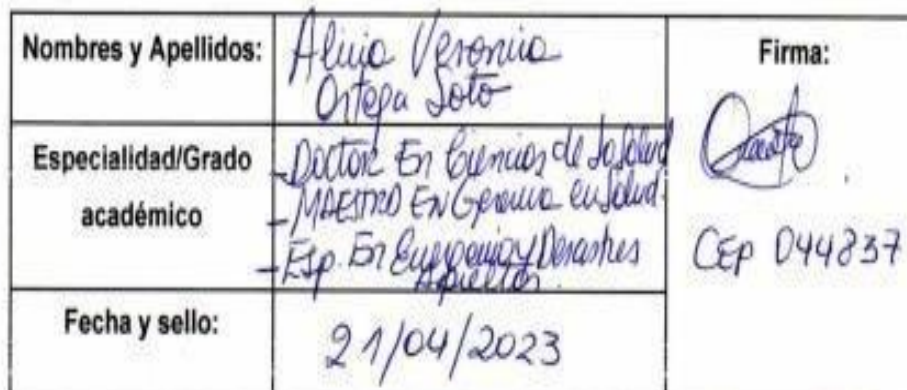 Nombres y Apellidos:
Alicia Veronica
Ortega Soto
Firma:
Especialidad/Grado
académico
- Doctor En Ciencias de la Salud
- MAESTRO EN Gerencia en Salud.
- Esp. En Emergencia y Desastres
CEP 044837
Fecha y sello:
21/04/2023